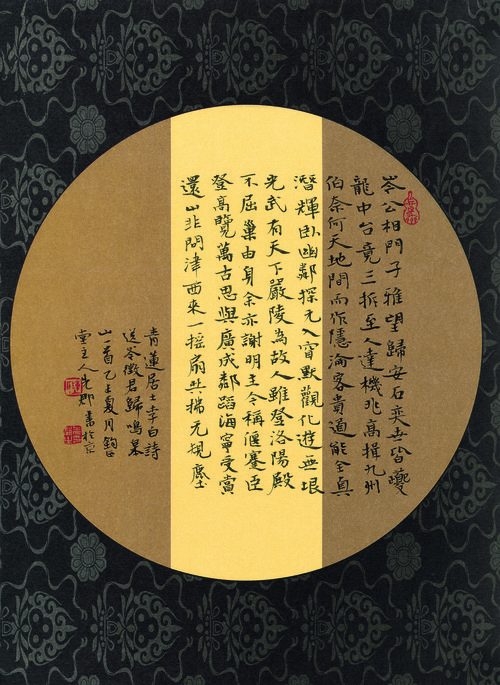 岑公相門子雅望歸安石奕世皆夔
龍中台竟三拆至人達機兆高揖九州
伯奈何天地間而作隱淪客貴道能全真
潛輝臥幽鄰探元入窅默觀化遊無垠
光武有天下嚴陵為故人雖登洛陽殿
不屈巢由身余亦謝明主今稱偃蹇臣
登高覽萬古思與廣成鄰蹈海寧受賞
還山非問津西來一搖扇共拂元規塵
青蓮居士李白詩
送岑徵君歸鳴皋
山一首乙未夏月
堂主人郡書於京